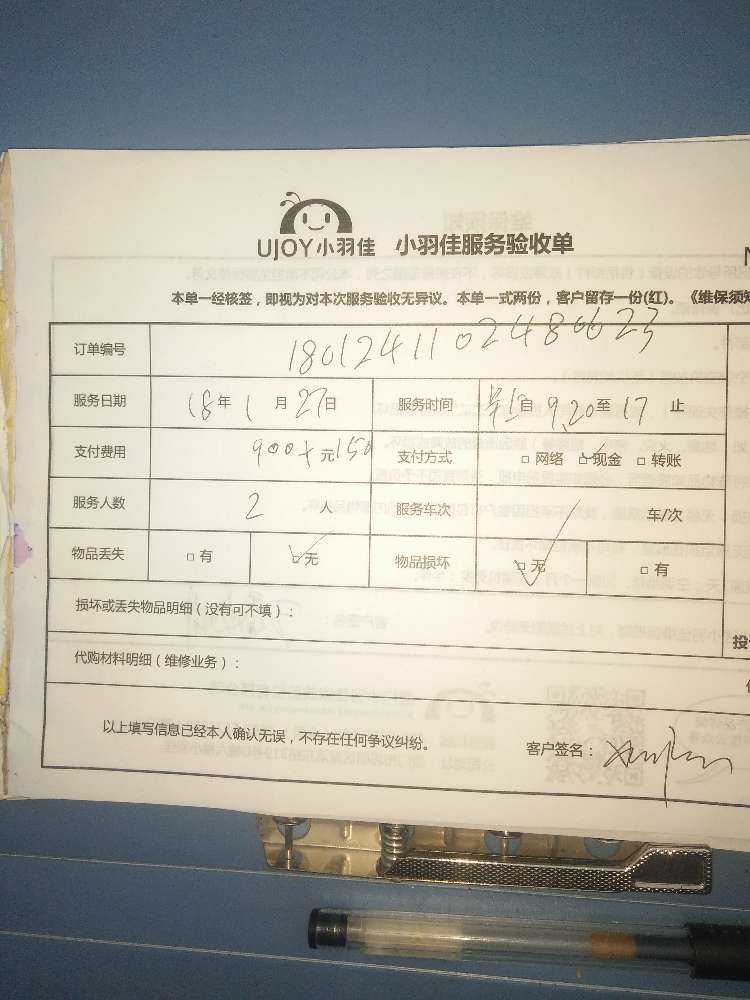 UJOY小羽佳 小羽佳服务验收单
本单一经核签，即视为对本次服务验收无异议。本单一式两份，客户留存一份(红)。《维保须知
订单编号 1801241102480623
服务日期 18年1月27日 服务时间 自9.20至17止
支付费用 900+元150 支付方式 □网络 ☑现金 □转账
服务人数 2人 服务车次 / 车/次
物品丢失 □有 ☑无 物品损坏 ☑无 □有
损坏或丢失物品明细（没有可不填）：
代购材料明细（维修业务）：
以上填写信息已经本人确认无误，不存在任何争议纠纷。 客户签名：